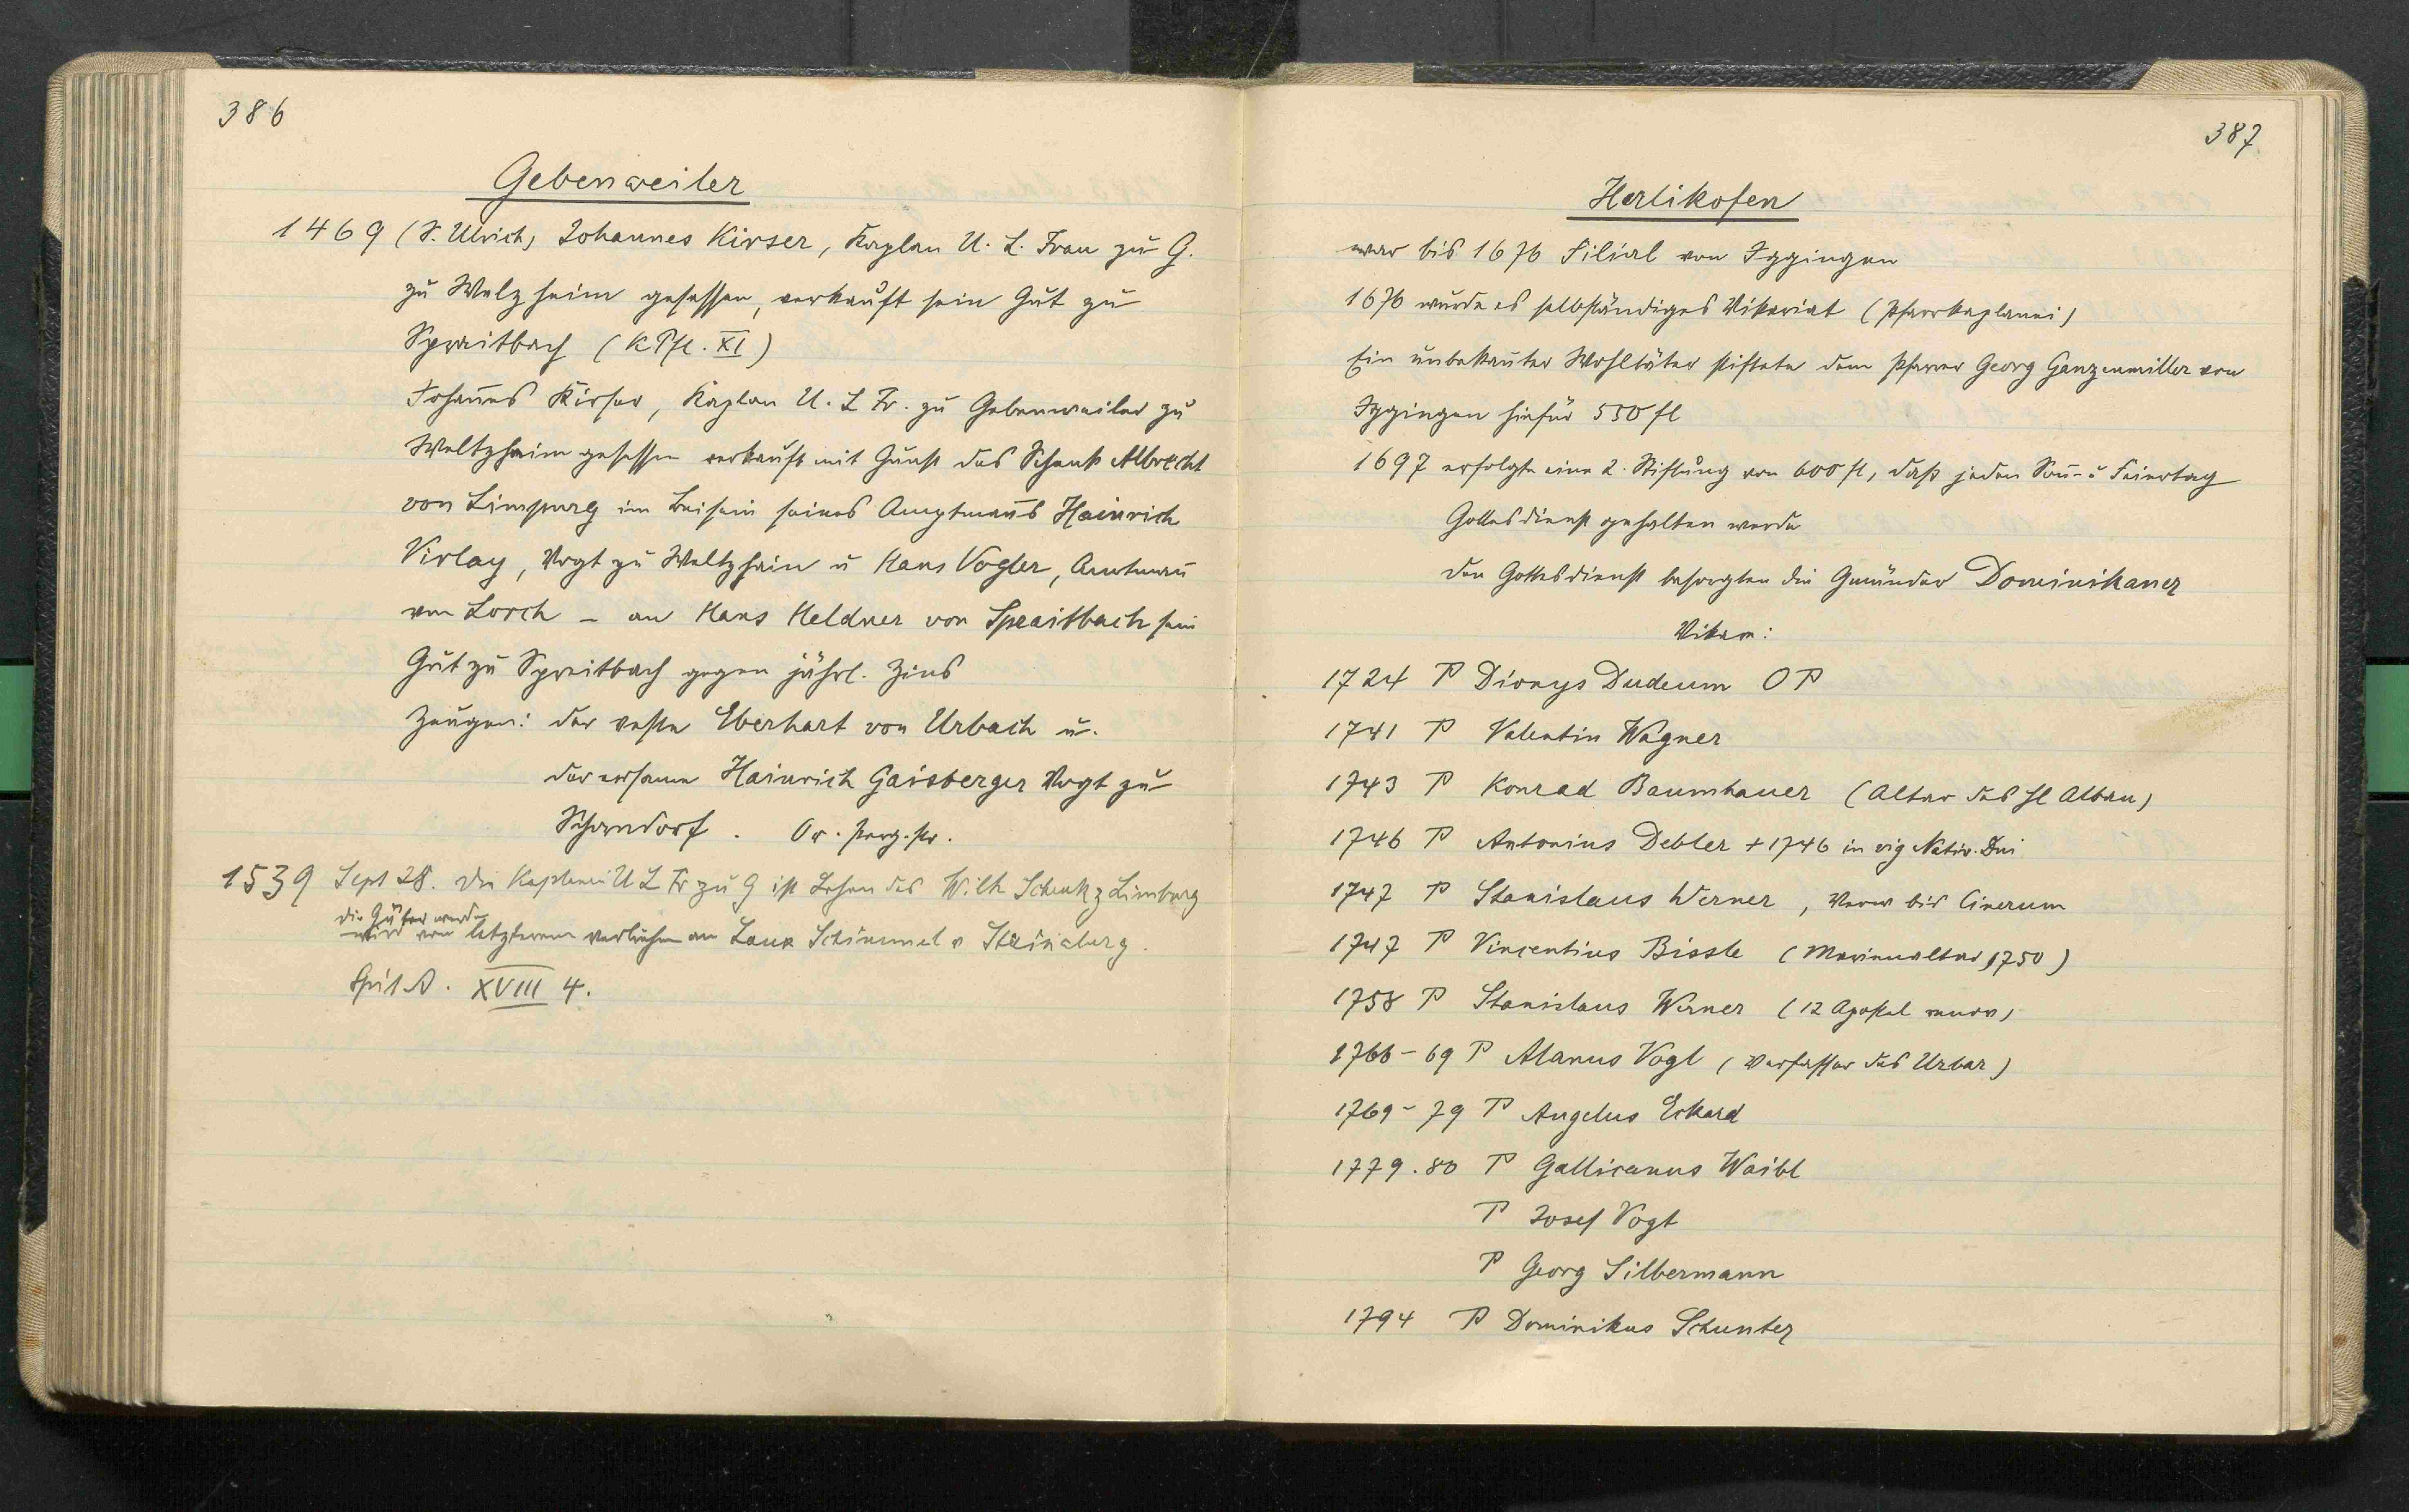 386
Gebenweiler
1469 (S. Ulrich) Johannes Kirser, Kaplan U. L. Frau zu G.
zu Welzheim gesessen, verkauft sein Gut zu
Spreitbach (KPfl. XI)
Johan̄es Kirser, Kaplan U. L Fr. zu Gebenweiler zu
Weltzheim gesessen verkauft mit Gunst des Schenk Albrecht
von Limpurg im Beisein seines Amptman̄s Hainrich
Virlay, Vogt zu Weltzhein u Hans Vogler, Amtman̄
von Lorch – an Hans Heldner von Spraitbach sein
Gut zu Spreitbach gegen jährl. Zins
Zeugen: der veste Eberhart von Urbach u.
der ersame Hainrich Gaisberger Vogt zu
Schorndorf. Or. Perg. Ur.
1539 Sept 28. Die Kaplanei U L Fr zu G ist Lehen des Wilh Schenk z Limburg
die Güter werden
wird von letzterem verliehen an Schimmel v
Spit A. XVIII 4.
387
Herlikofen
war bis 1676 Filial von Iggingen
1676 wurde es selbständiges Vikariat (Pfarrkaplanei)
Ein unbekan̄ter Wohltäter stiftete dem Pfarrer Georg Ganzenmiller von
Iggingen hiefür 550 fl
1697 erfolgte eine 2. Stiftung von 600 fl, daß jeden Son̄- u Feiertag
Gottesdienst gehalten werde
Den Gottesdienst besorgten die Gmünder Dominikaner
Vikare:
1724 P Dionys Dudeum OP
1741 P Valentin Wagner
1743 P Konrad Baumhauer (Altar des hl Alban)
1746 P Antonius Debler + 1746 in vig Nativ. Dni
1747 P Stanislaus Werner, bis Cinerum
1747 P Vincentius Bissle (Marienaltar 1750)
1758 P Stanislaus Werner (12 Apostel)
1766-69 P Alanus Vogt (Verfasser des Urbar)
1769-79 P Angelus Eckard
1779.80 P Gallicanus Waibl
P Josef Vogt
P Georg Silbermann
1794 P Dominikus Schunter